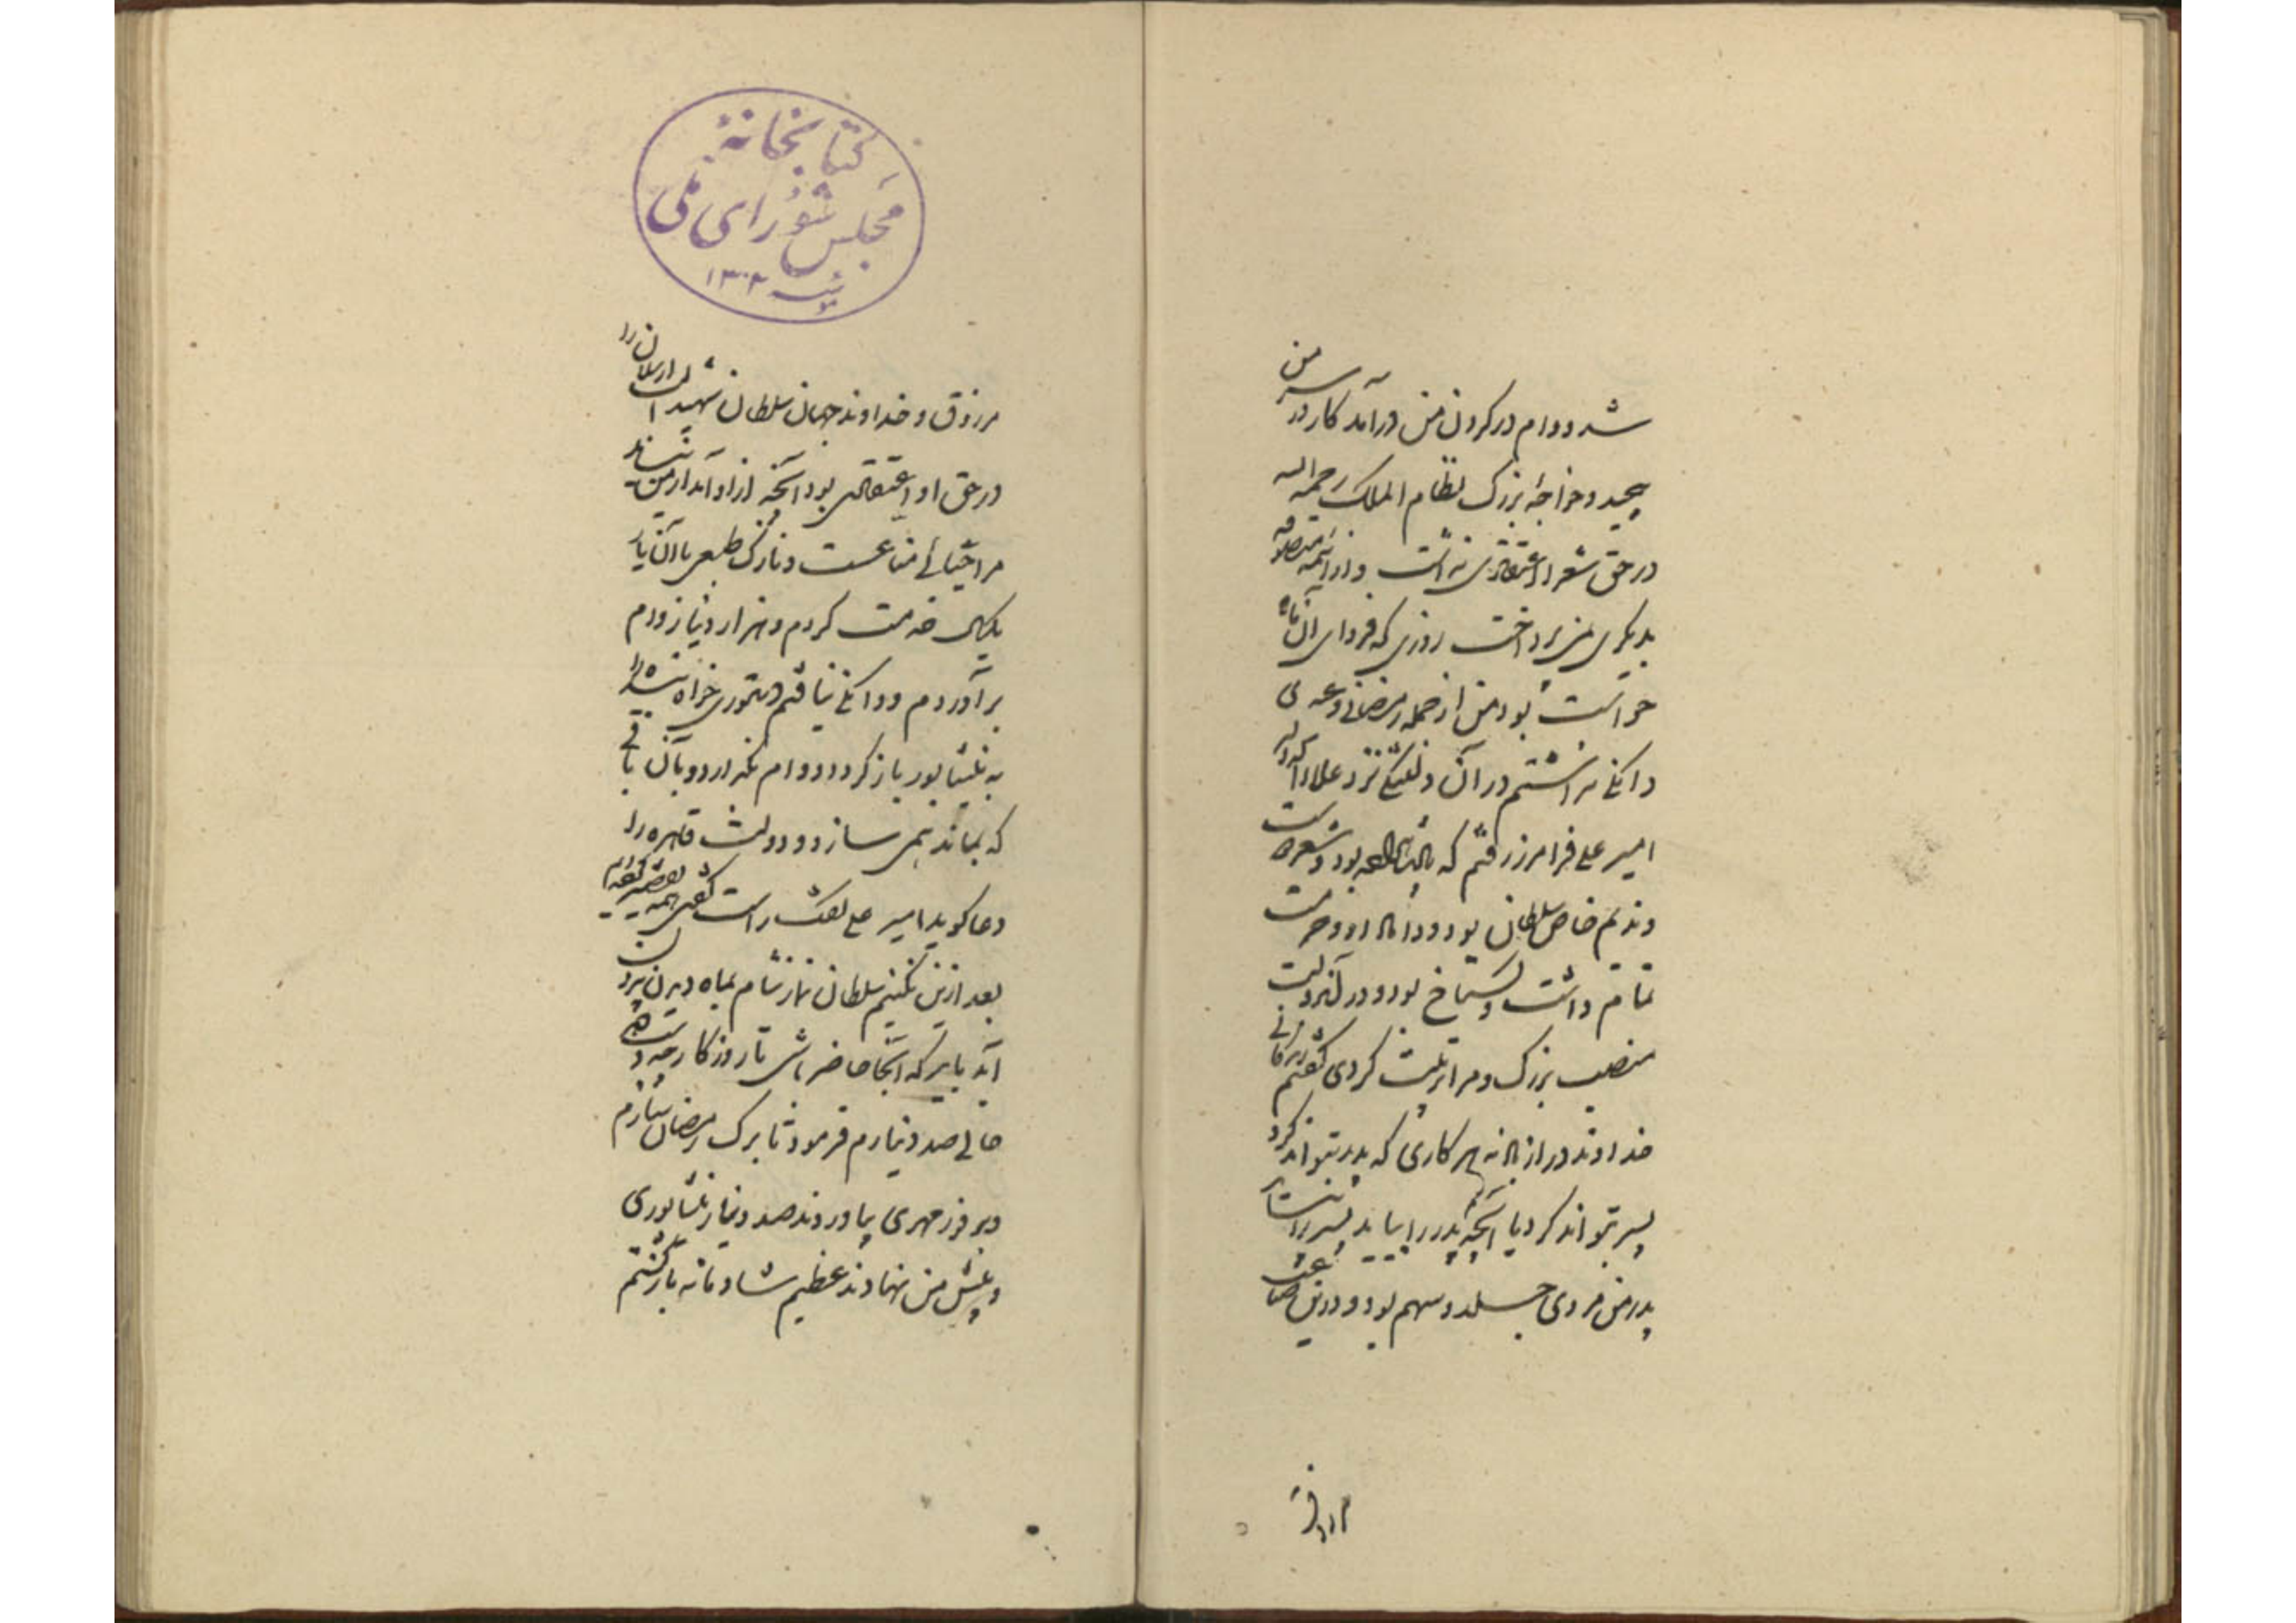 شد و وام در گردن من در آمد کار در سر من
پیچید و خواجه بزرک نظام الملک رحمه الله
در حق شعرا اعتقادی نداشت و از ائمه متصوفه
بدیکری نمی پرداخت روزی که فردای آن ماه
خواست بود من از جمله رمضانی و عیدی
دانکی نداشتم در آن دلتنکی نزد علاء الدوله
امیر علی فرامرز رفتم که پادشاه بود و شعر دوست
و ندیم خاص سلطان بود و داماد او و حرمت
تمام داشت و کستاخ بود و در آن دولت
منصب بزرک و مرا تربیت کردی کفتم زندکانی
خداوند دراز باد نه هر کاری که پدر بتواند کرد
پسر بتواند کرد یا آنچه پدر را بیاید پسر را
پدر من مردی جلد و سهم بود و درین صناعت
مرزوق
کتابخانهٔ
مجلس شورای ملی
۱۳۰۲
مرزوق و خداوند جهان سلطان شهید الب ارسلان را
در حق او اعتقادی بود آنچه از او آمد از من
مرا حیائی مناعست و نازک طبعی با آن یار
یکسال خدمت کردم و هزار دینار وام
برآوردم و دانکی نیافتم دستوری خواه بنده را
به نیشابور باز کردد و وام بکزارد و بآن باقی
که بماند همی سازد و دولت قاهره را
دعا کوید امیر علی کفت راست کفتی همه تقصیر کرده ایم
بعد ازین نکنیم سلطان نماز شام بماه دیدن بیرون
آید باید که آنجا حاضر باشی تا روزکار چه دست دهد
حالی صد دینارم فرمود تا برک رمضان سازم
و بر فور مهری بیاوردند صد دینار نشابوری
و پیش من نهادند عظیم شادمانه بازکشتم